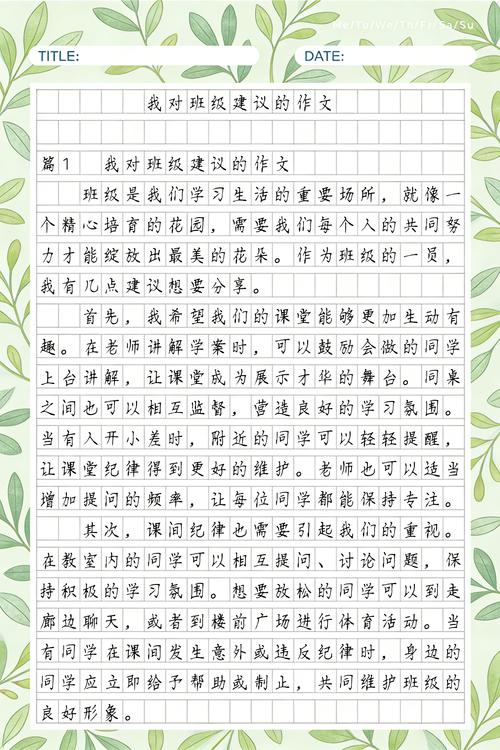 Mo/Tu/We/Th/Fr/Sa/Su
TITLE:
DATE:
我对班级建议的作文
篇1 我对班级建议的作文
班级是我们学习生活的重要场所，就像一
个精心培育的花园，需要我们每个人的共同努
力才能绽放出最美的花朵。作为班级的一员，
我有几点建议想要分享。
首先，我希望我们的课堂能够更加生动有
趣。在老师讲解学案时，可以鼓励会做的同学
上台讲解，让课堂成为展示才华的舞台。同桌
之间也可以相互监督，营造良好的学习氛围。
当有人开小差时，附近的同学可以轻轻提醒，
让课堂纪律得到更好的维护。老师也可以适当
增加提问的频率，让每位同学都能保持专注。
其次，课间纪律也需要引起我们的重视。
在教室内的同学可以相互提问、讨论问题，保
持积极的学习氛围。想要放松的同学可以到走
廊边聊天，或者到楼前广场进行体育活动。当
有同学在课间发生意外或违反纪律时，身边的
同学应立即给予帮助或制止，共同维护班级的
良好形象。